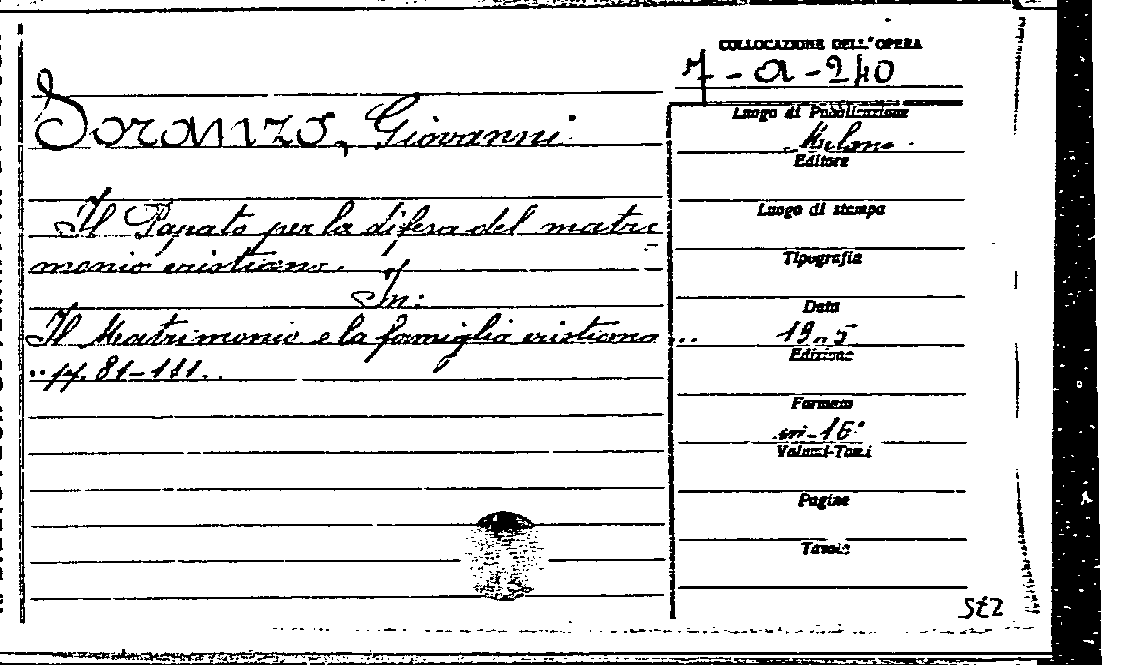 COLLOCAZIONE DELL'OPERA
7-a-240
Soranzo, Giovanni
Luogo di Pubblicazione
Milano
Editore
Il Papato per la difesa del matri
Luogo di stampa
monio cristiano.
Tipografia
In:
Data
Il Matrimonio e la famiglia cristiana...
Edizione
.. pp. 81-111..
Formato
in-16°
Volumi-Tomi
Pagine
Tavole